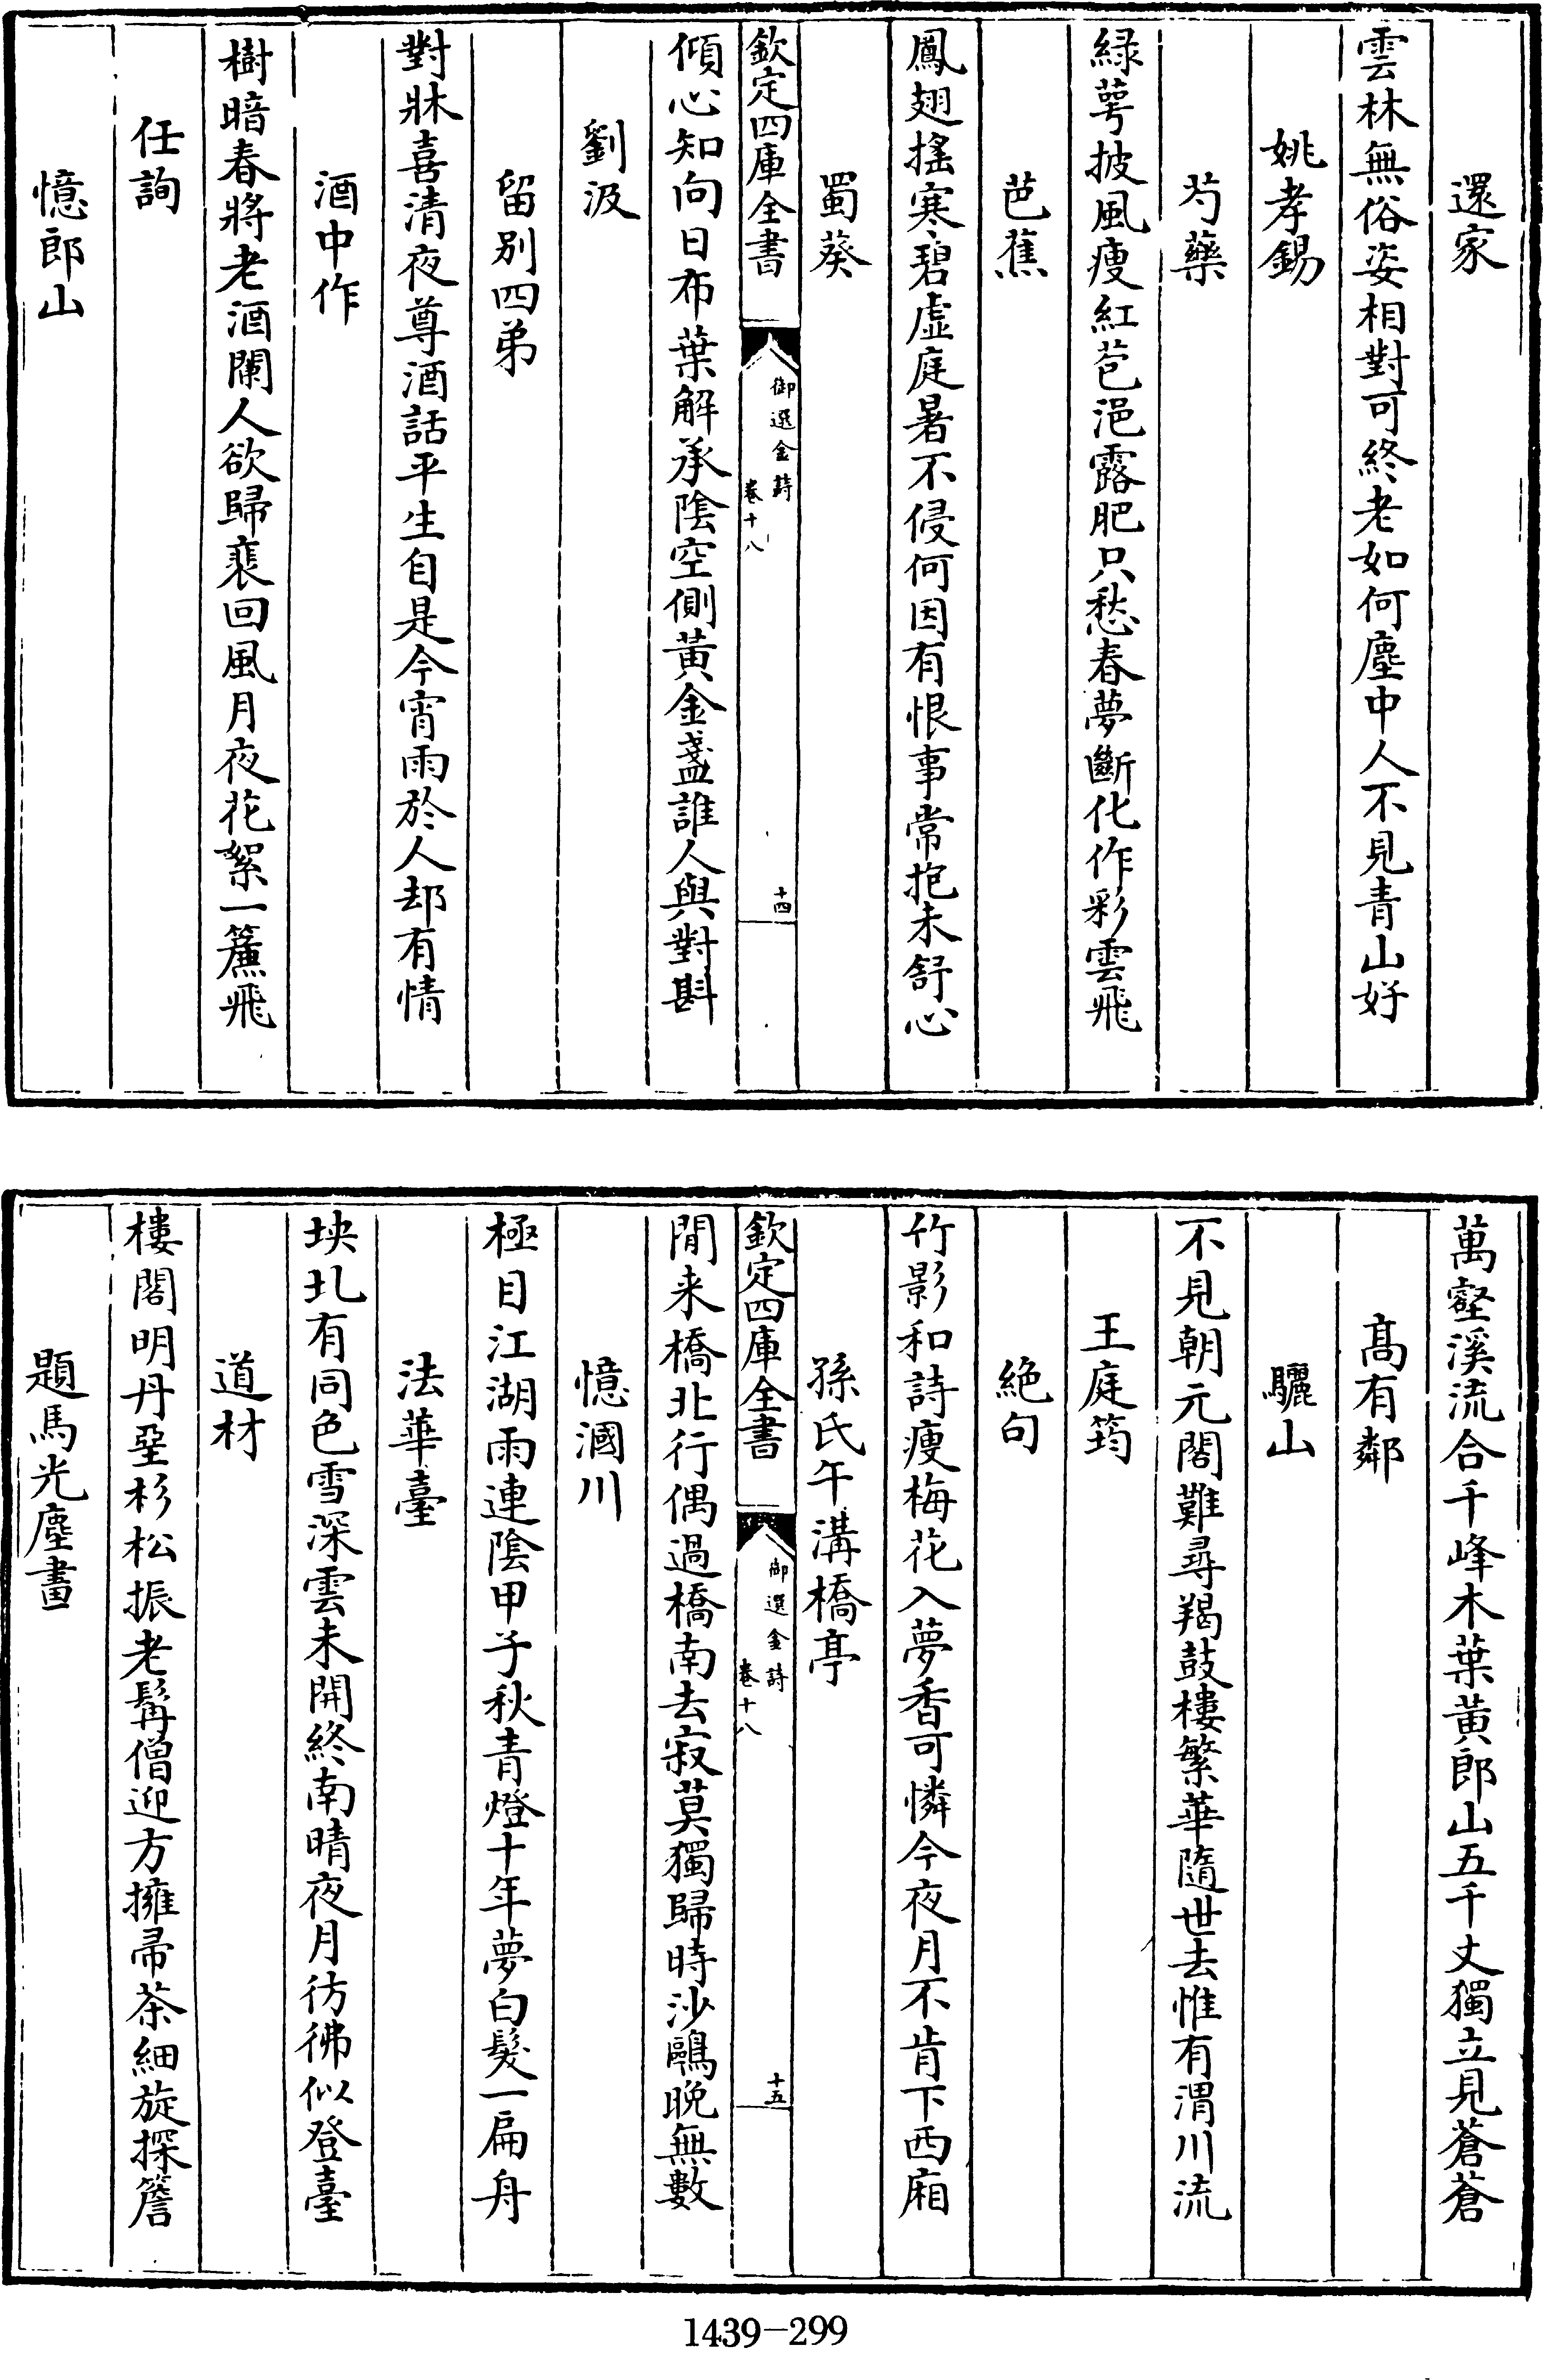 還家
雲林無俗姿相對可終老如何塵中人不見青山好
姚孝錫
芍藥
緑萼披風瘦紅苞浥露肥只愁春夢斷化作彩雲飛
芭蕉
鳳翅搖寒碧虚庭暑不侵何因有恨事常抱未舒心
蜀葵
欽定四庫全書
御選金詩
卷十八
十四
傾心知向日布葉解承陰空側黄金盞誰人與對斟
劉汲
留别四弟
對牀喜清夜尊酒話平生自是今宵雨於人却有情
酒中作
樹暗春將老酒闌人欲歸裴回風月夜花絮一簾飛
任詢
憶郎山
萬壑溪流合千峰木葉黄郎山五千丈獨立見蒼蒼
髙有鄰
驪山
不見朝元閣難尋羯鼓樓繁華隨世去惟有渭川流
王庭筠
絶句
竹影和詩瘦梅花入夢香可憐今夜月不肯下西廂
孫氏午溝橋亭
欽定四庫全書
御選金詩
卷十八
十五
閒来橋北行偶過橋南去寂莫獨歸時沙鷗晩無數
憶漍川
極目江湖雨連陰甲子秋青燈十年夢白髮一扁舟
法華臺
坱圠有同色雪深雲未開終南晴夜月彷彿似登臺
道材
樓閣明丹堊杉松振老髯僧迎方擁帚茶細旋探簷
題馬光塵畫
1439-299